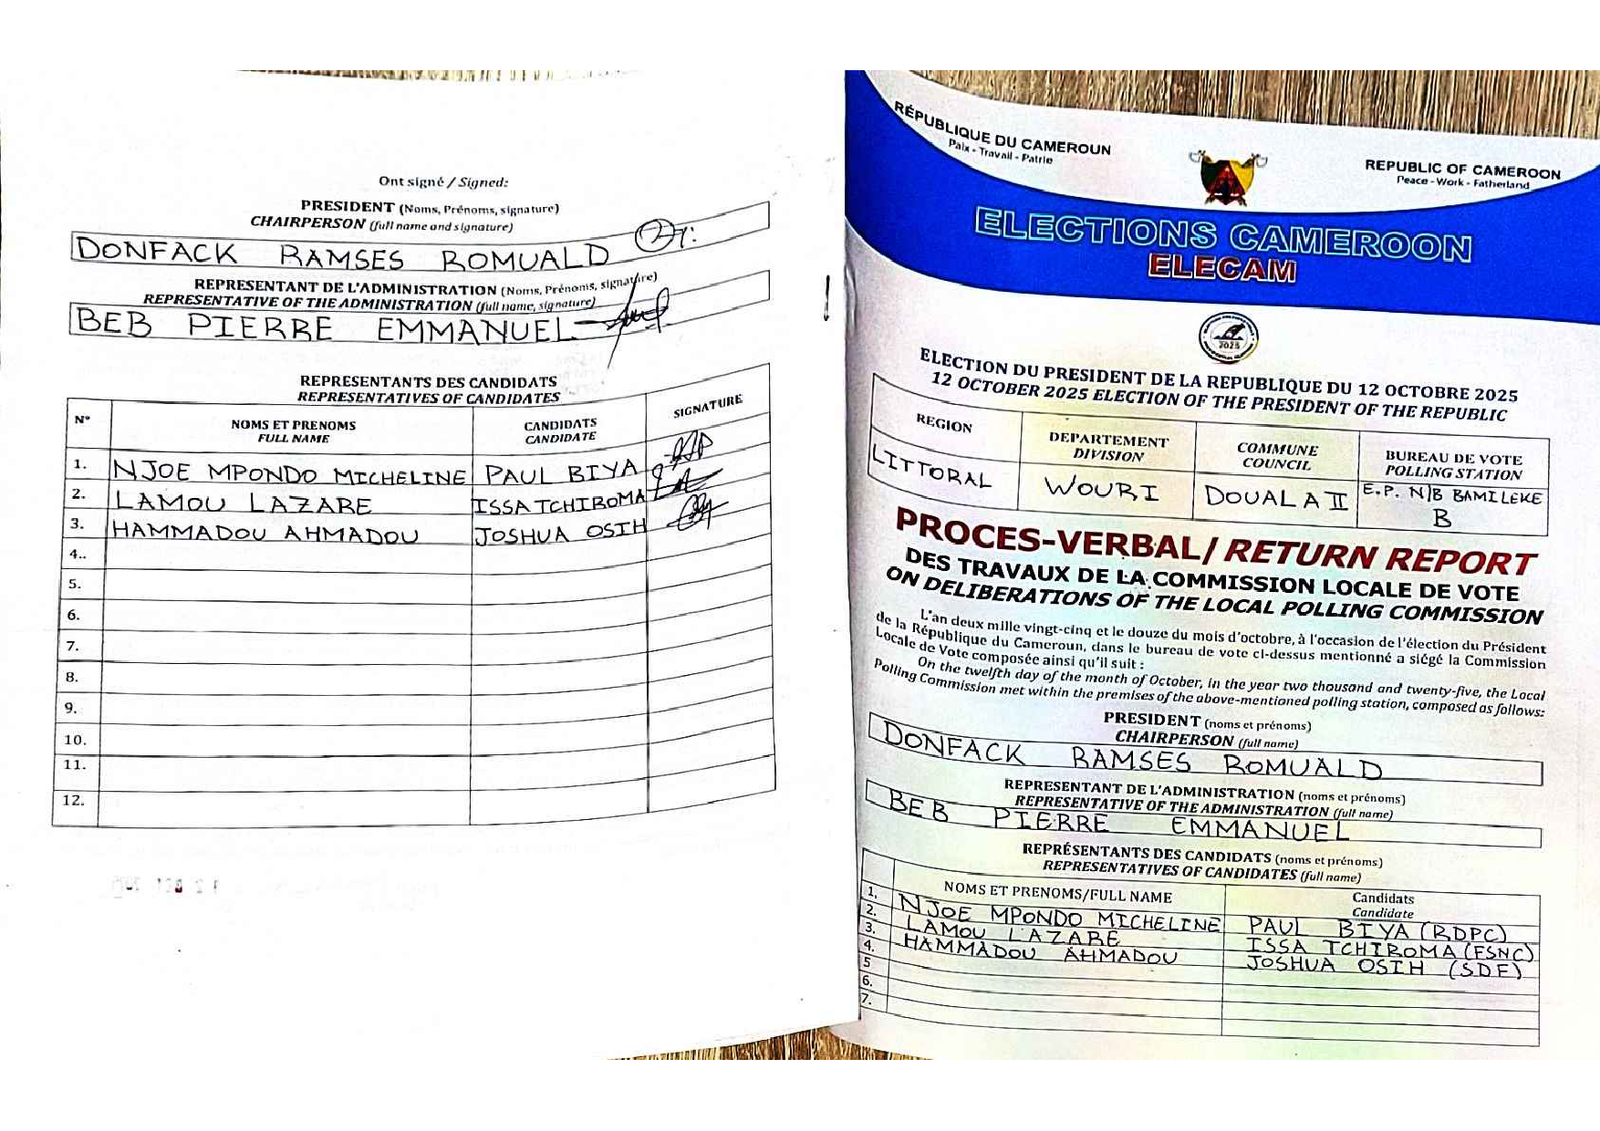 Ont signé / Signed:
PRESIDENT (Noms, Prénoms, signature)
CHAIRPERSON (full name and signature)
DONFACK RAMSES ROMUALD
REPRESENTANT DE L'ADMINISTRATION (Noms, Prénoms, signature)
REPRESENTATIVE OF THE ADMINISTRATION (full name, signature)
BEB PIERRE EMMANUEL
REPRESENTANTS DES CANDIDATS
REPRESENTATIVES OF CANDIDATES
N° NOMS ET PRENOMS FULL NAME CANDIDATS CANDIDATE SIGNATURE
1. NJOE MPONDO MICHELINE PAUL BIYA
2. LAMOU LAZARE ISSA TCHIROMA
3. HAMMADOU AHMADOU JOSHUA OSIH
4..
5.
6.
7.
8.
9.
10.
11.
12.
RÉPUBLIQUE DU CAMEROUN
Paix - Travail - Patrie
REPUBLIC OF CAMEROON
Peace - Work - Fatherland
ELECTIONS CAMEROON
ELECAM
2025
ELECTION DU PRESIDENT DE LA REPUBLIQUE DU 12 OCTOBRE 2025
12 OCTOBER 2025 ELECTION OF THE PRESIDENT OF THE REPUBLIC
REGION DEPARTEMENT DIVISION COMMUNE COUNCIL BUREAU DE VOTE POLLING STATION
LITTORAL WOURI DOUALA II E.P. N/B BAMILEKE B
PROCES-VERBAL/ RETURN REPORT
DES TRAVAUX DE LA COMMISSION LOCALE DE VOTE
ON DELIBERATIONS OF THE LOCAL POLLING COMMISSION
L'an deux mille vingt-cinq et le douze du mois d'octobre, à l'occasion de l'élection du Président
de la République du Cameroun, dans le bureau de vote ci-dessus mentionné a siégé la Commission
Locale de Vote composée ainsi qu'il suit :
On the twelfth day of the month of October, in the year two thousand and twenty-five, the Local
Polling Commission met within the premises of the above-mentioned polling station, composed as follows:
PRESIDENT (noms et prénoms)
CHAIRPERSON (full name)
DONFACK RAMSES ROMUALD
REPRESENTANT DE L'ADMINISTRATION (noms et prénoms)
REPRESENTATIVE OF THE ADMINISTRATION (full name)
BEB PIERRE EMMANUEL
REPRÉSENTANTS DES CANDIDATS (noms et prénoms)
REPRESENTATIVES OF CANDIDATES (full name)
NOMS ET PRENOMS/FULL NAME Candidats Candidate
1. NJOE MPONDO MICHELINE PAUL BIYA (RDPC)
2. LAMOU LAZARE ISSA TCHIROMA (FSNC)
3. HAMMADOU AHMADOU JOSHUA OSIH (SDF)
4.
5
6.
7.